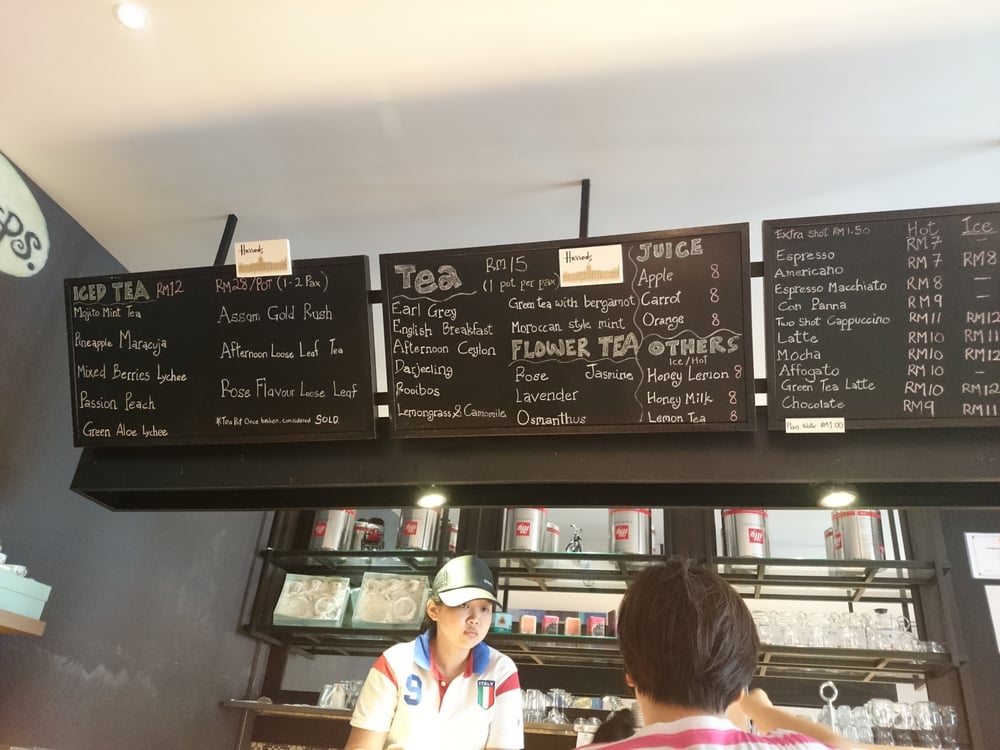 ps.
Harrods
ICED TEA RM12
Mojito Mint Tea
Pineapple Maracuja
Mixed Berries Lychee
Passion Peach
Green Aloe Lychee
RM28/POT (1-2 Pax)
Assam Gold Rush
Afternoon Loose Leaf Tea
Rose Flavour Loose Leaf
*Tea Pot Once broken, considered SOLD.
Harrods
Tea RM15
(1 pot per pax)
Earl Grey
English Breakfast
Afternoon Ceylon
Darjeeling
Rooibos
Lemongrass & Camomile
Green tea with bergamot
Moroccan style mint
FLOWER TEA
Rose Jasmine
Lavender
Osmanthus
JUICE
Apple 8
Carrot 8
Orange 8
OTHERS
Ice/Hot
Honey Lemon 8
Honey Milk 8
Lemon Tea 8
Extra shot RM1.50 Hot Ice
Espresso RM7 -
Americano RM7 RM8
Espresso Macchiato RM8 -
Con Panna RM9 -
Two Shot Cappuccino RM11 RM12
Latte RM10 RM11
Mocha RM10 RM12
Affogato RM10 -
Green Tea Latte RM10 RM12
Chocolate RM9 RM11
Plain Water RM1.00
illy
illy
illy
illy
illy
illy
9
ITALY